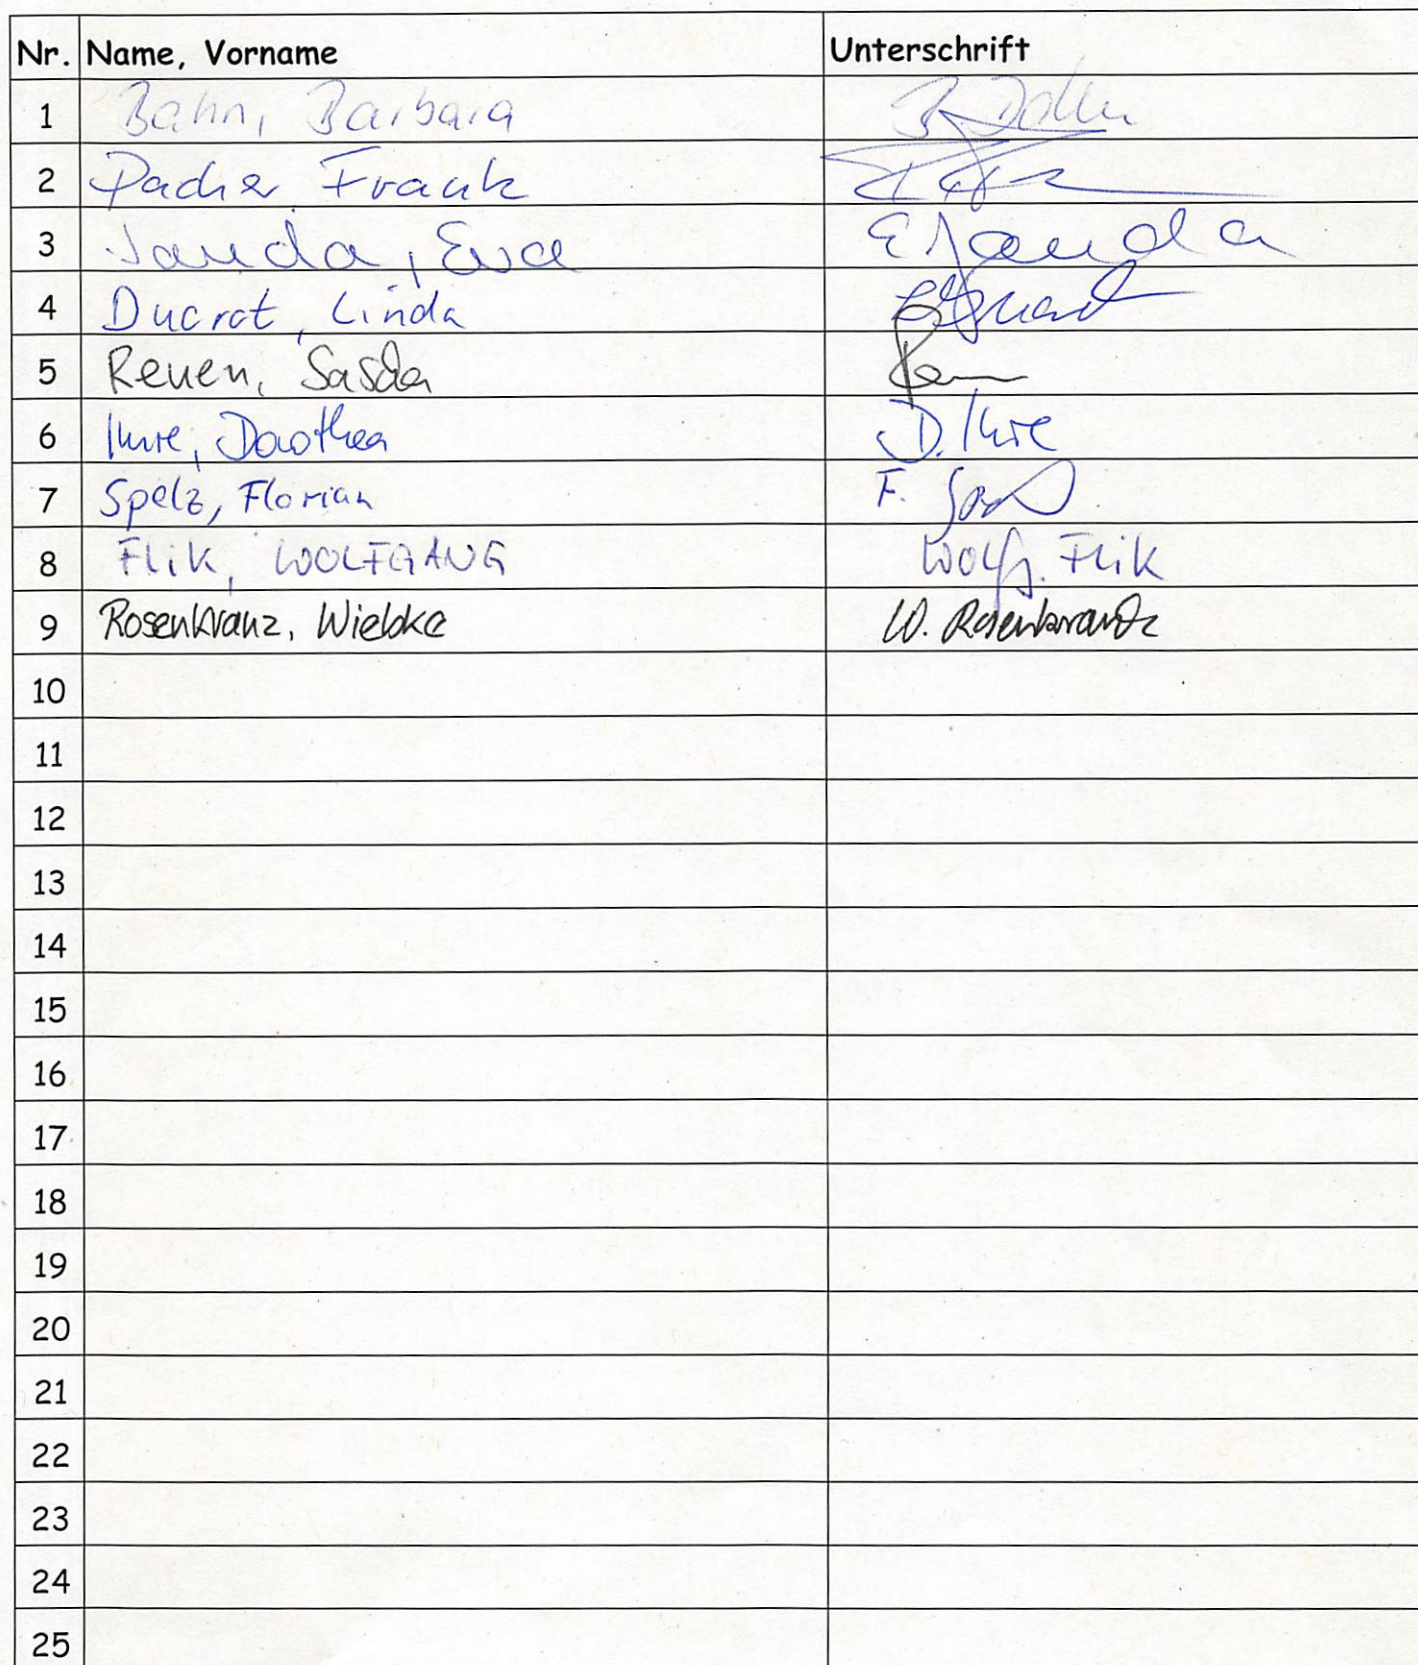 Nr. Name, Vorname Unterschrift
1 Bahn, Barbara
2 Pacher Frank
3 Janda, Eva E Janda
4 Ducrot, Linda
5 Reuen, Sascha
6 Ihre, Dorothea D. Ihre
7 Spelz, Florian F.
8 FLiK, WOLFGANG Wolfg. FLiK
9 Rosenkranz, Wiebke W. Rosenkranz
10
11
12
13
14
15
16
17
18
19
20
21
22
23
24
25